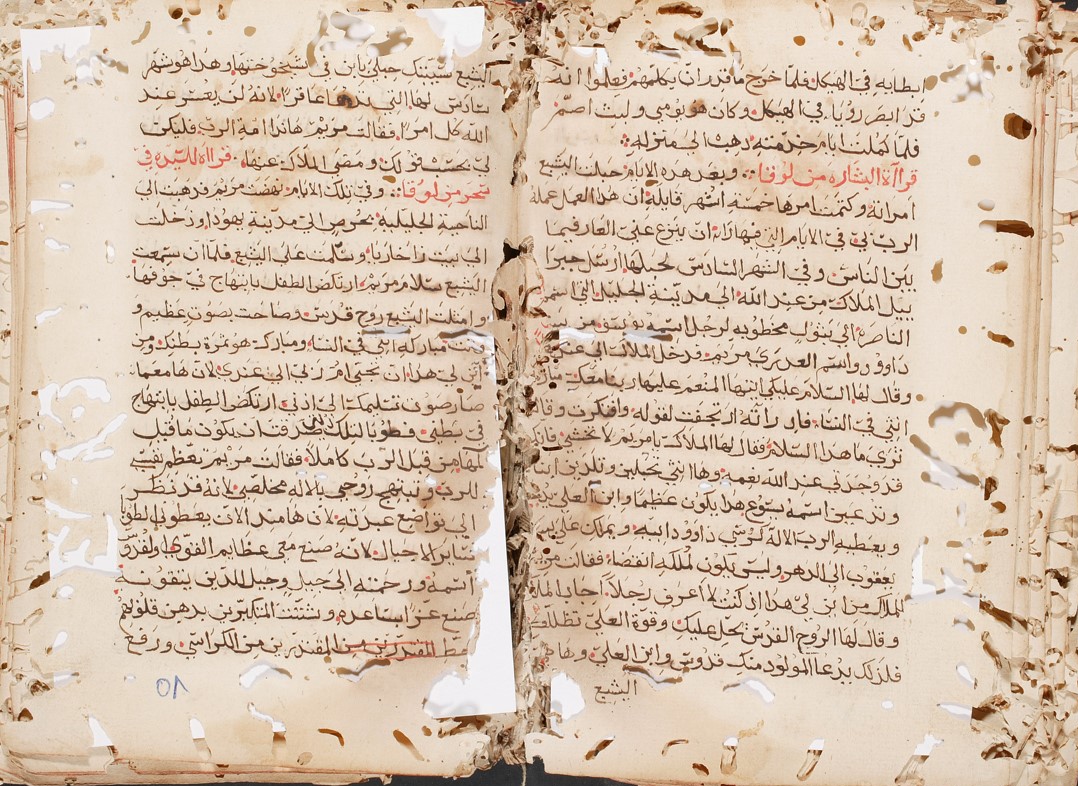 ابطايه في الهيكل فلما خرج ما قدر ان يكلمهم فعلموا انه
قد ابصر رؤيا في الهيكل وكان هو يومي ولبث اصم
فلما كملت ايام خدمته ذهب الى منزله
قراة البشاره من لوقا وبعد هذه الايام حبلت اليشبع
امراته وكتمت امرها خمسة اشهر قايلة ان هذا العمل عمله
الرب لي في الايام التي فيها راا ان ينزع عني العار فيما
بين الناس وفي الشهر السادس لحبلها ارسل جبرا
ييل الملاك من عند الله الى مدينة الجليل التي اسمها
الناصرة الي بتول مخطوبه لرجل اسمه يوسف من
داوود واسم العدري مريم فدخل الملاك الى عندها
وقال لها السلام عليكي ايتها المنعم عليها ربنا معك
انتي في النسا فلما راته ارتجفت لقوله وافتكرت وقالت
تري ما هدا السلام فقال لها الملاك يا مريم لا تخشي فانك
قد وجدتي عند الله نعمه وها انتي تحبلين وتلدين ابنا
وتدعين اسمه يسوع هدا يكون عظيما وابن العلي يدعى
ويعطيه الرب الاله كرسي داوود ابيه ويملك علي بيت
يعقوب الى الدهر وليس يكون لملكه انقضاء فقالت مريم
للملاك من اين لي هدا اذ كنت لا اعرف رجلا اجابا الملاك
وقال لها الروح القدس يحل عليك وقوة العلي تظللك
فلذلك يدعا المولود منك قدوس وابن العلي وها
اليشبع
اليشبع نسيبتك حبلي بابن في شيخوختها وهدا هو شهر
سادس لها التي تدعا عاقرا لانه لن يعسر عند
الله كل امرا فقالت مريم هاندا امة الرب فليكن
لي بحسب قولك ومضى الملاك عنها قراة للسيده في
سحر من لوقا وفي تلك الايام نهضت مريم فدهبت الى
الناحية الجليلية بحرص الى مدينة يهودا ودخلت
الى بيت زاخاريا وسلمت على اليشبع فلما ان سمعت
اليشبع سلام مريم ارتكض الطفل بابتهاج في جوفها
وامتلت اليشبع روح قدس وصاحت بصوت عظيم و
مباركه انتي في النسا ومبارك هو ثمرة بطنك ومن
اين لي هدا ان تجي ام ربي الى عندي لان هامعما
صار صوت تسليمك في اذني ارتكض الطفل بابتهاج
في بطني فطوبا لتلك التي صدقت ان يكون ما قيل
لها من قبل الرب كاملا فقالت مريم تعظم نفسي
للرب وتبتهج روحي بالاله مخلصي لانه قد نظر
الى تواضع عبدته لان هامند الان يعطوني الطوبا
ساير الاجيال لانه صنع معي عظايم القوي والقدوس
اسمه ورحمته الى جيل وجيل للدين يتقونه
صنع عزا بساعده وشتت المتكبرين بدهن قلوبهم
حط المقتدرين من الكراسي ورفع
٥٧